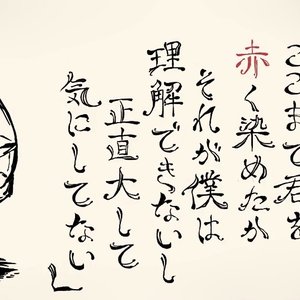 ここまで君を
赤く染めたか
それが僕は
理解できないし
正直大して
気にしてない」